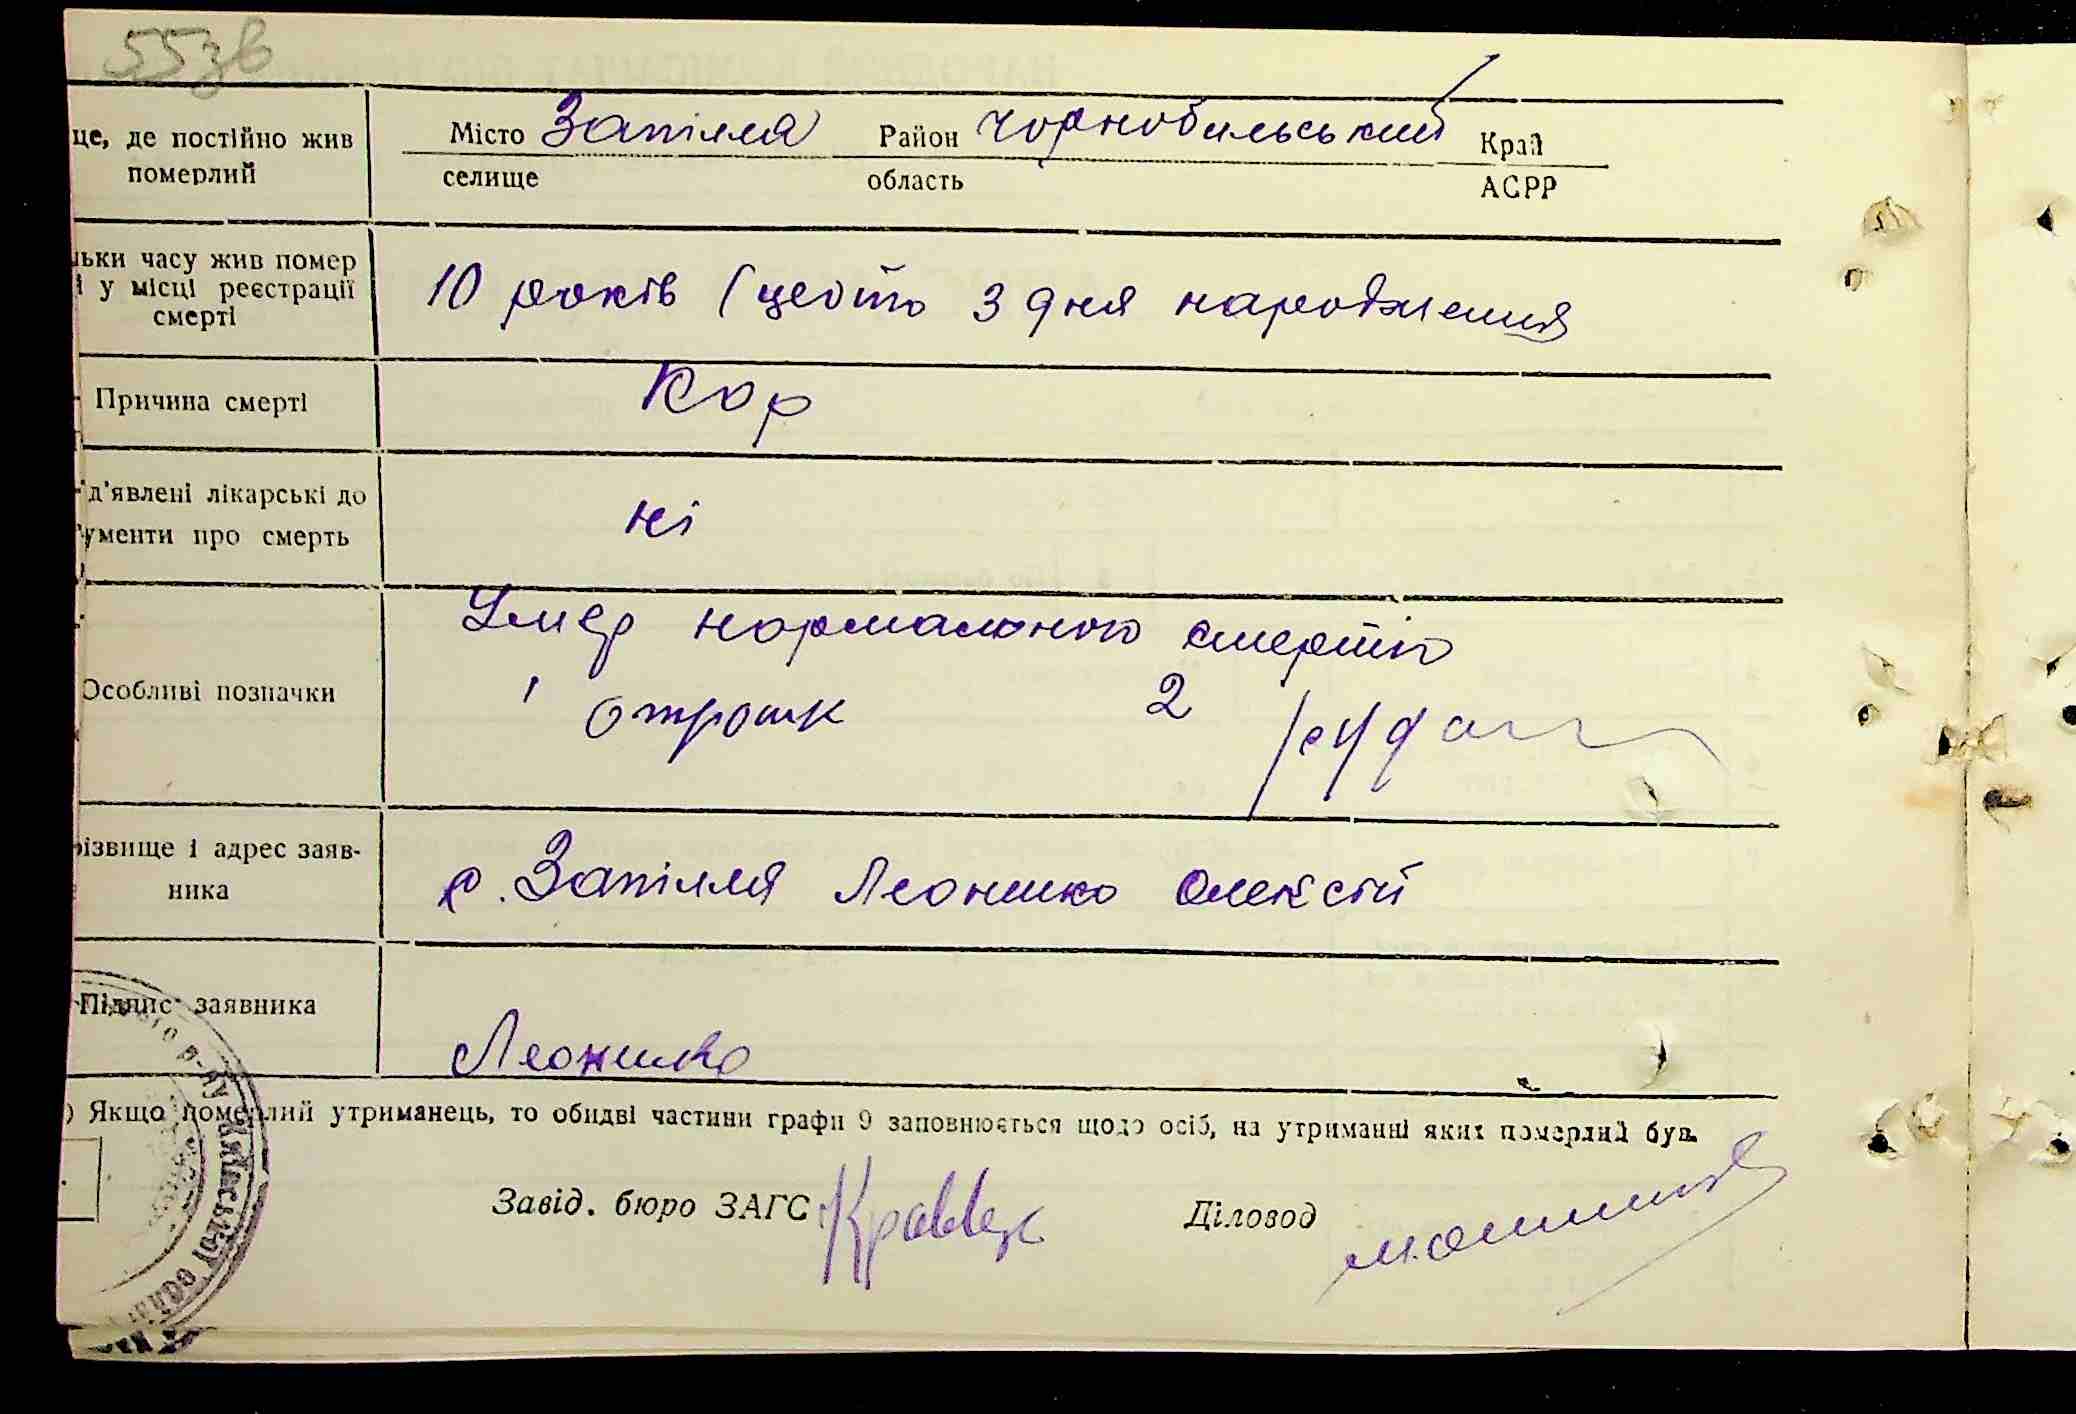 55зв
це, де постійно жив
померлий
Місто Запілля Район Чорнобильський Край
селище область АСРР
льки часу жив помер
і у місці реєстрації
смерті
10 років (цебто з дня народження
Причина смерті
Кор
д'явлені лікарські до
ументи про смерть
ні
Особливі позначки
Умер нормальною смертю
2
різвище і адрес заяв-
ника
с. Запілля Леоненко Олексій
Підпис заявника
Леоненко
) Якщо померлий утриманець, то обидві частини графи 9 заповнюється щодо осіб, на утриманні яких померлий був.
Завід. бюро ЗАГС Кравец
Діловод
р-ну Київської обла